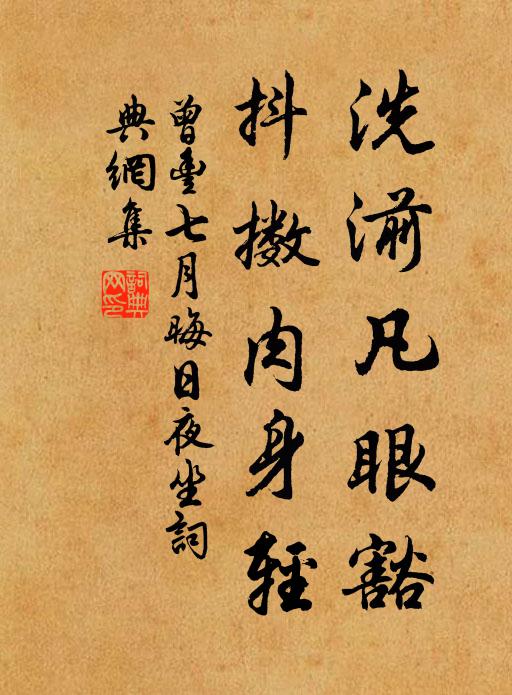 洗湔凡眼豁
抖擻肉身輕
曾豐七月晦日夜坐詞
典網集
詞典網印